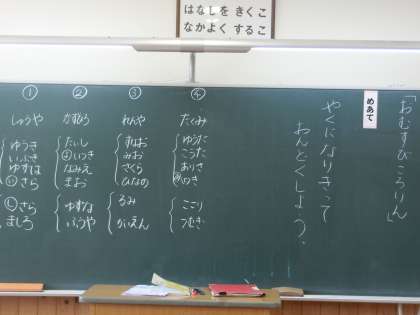 はなしを きくこ
なかよく するこ
「おむすびころりん」
めあて
やくになりきって
おんどくしよう。
①
しゅうや
ゆうき
いぶき
ゆずは
さら
さら
ましろ
②
かずひろ
たいし
いつき
なみえ
まお
ゆずな
ふうや
③
れんや
すなお
みお
さくら
ひなの
るみ
かいえん
④
たくみ
ゆうた
こうた
ありさ
つむぎ